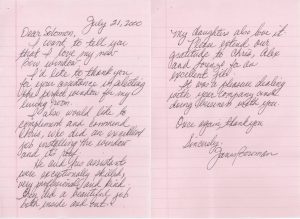 July 21, 2000
Dear Solomon,
I want to tell you
that I love my new
bay window.
I'd like to thank you
for your assistance in selecting
the perfect window for my
living room.
I also would like to
compliment and commend
Chris, who did an excellent
job installing the window
and its roof.
He and his assistant
were exceptionally skilled,
very professional and kind
They did a beautiful job
both inside and out.
my daughter also love it.
Please extend our
gratitude to Chris, Alex
and for an
excellent job.
It was a pleasure dealing
with your company and
doing business with you.
Once again, thank you
Sincerely,